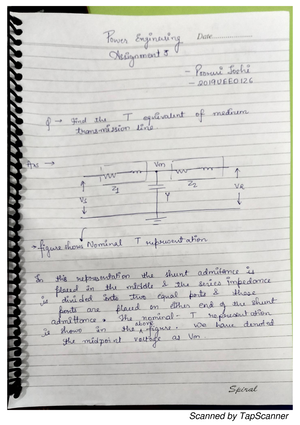 Power Engineering
Date
Assignment 8
- Joshi
- 2019UEE0126
Q → Find the T equivalent of medium
transmission line
Ans →
Vm
Z1
Z2
Vs
Y
VR
→ figure shows Nominal T representation
In this representation the shunt admittance is
placed in the middle & the series impedance
is divided into two equal parts & these
parts are placed on either end of the shunt
admittance. The nominal - T representation
is shown in the above figure. We have denoted
the midpoint voltage as Vm
Spiral
Scanned by TapScanner